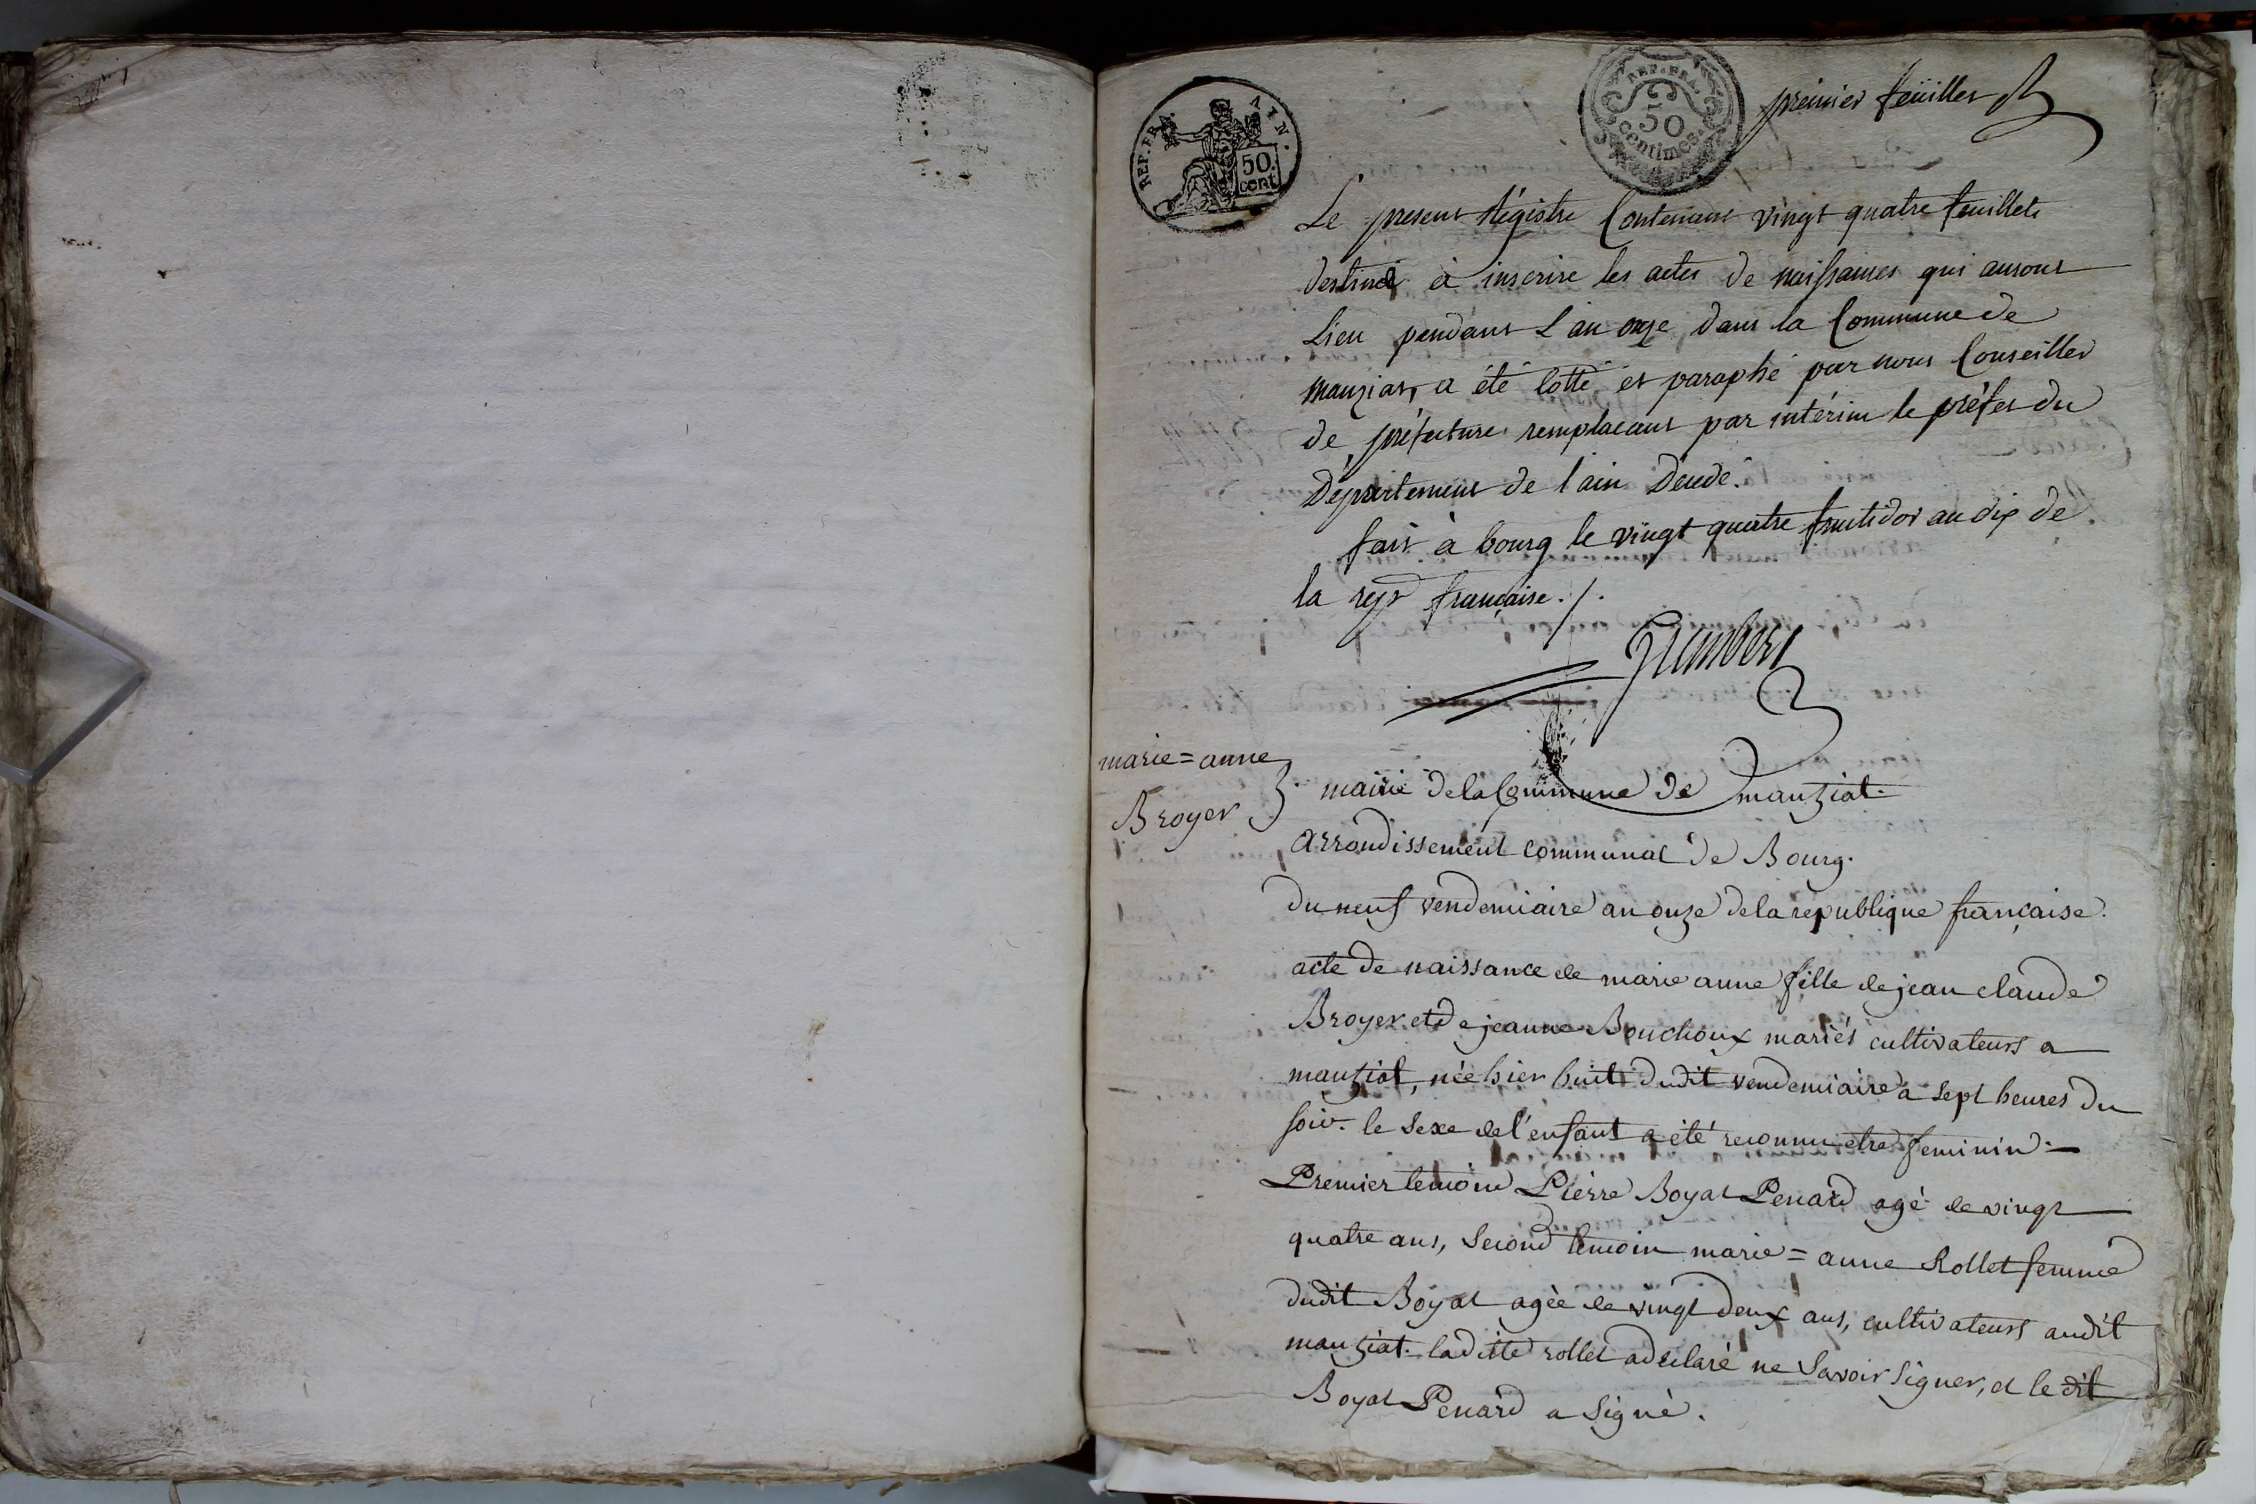 REP. FRA. AIN.
50 cent.
REP. FRA.
50
centimes.
premier feüillet
Le present Régistre Contenant vingt quatre feuillets
destiné à inscrire les actes de naissances qui auront
Lieu pendant L'an onze, dans la Commune de
manziat, a été cotté et paraphé par nous Conseiller
de préfecture remplacant par intérim le préfet du
Département de l'ain
fait à bourg le vingt quatre fructidor an dix de
la rep. française ./.
marie=anne
Broyer
mairie de la Commune de manziat.
arrondissement communal de Bourg.
du neuf vendemiaire an onze de la republique française.
acte de naissance de marie anne fille de jean claude
Broyer et de jeanne Bouchoux mariés cultivateurs a
manziat, née hier huit dudit vendemiaire a sept heures du
soir. le sexe de l'enfant a été reconnu etre feminin. —
Premier temoin Pierre Boyat Penard agé de vingt
quatre ans, second temoin marie=anne Rollet femme
dudit Boyat agée de vingt deux ans, cultivateurs audit
manziat. laditte rollet a déclaré ne savoir signer, et le dit
Boyat Penard a signé.